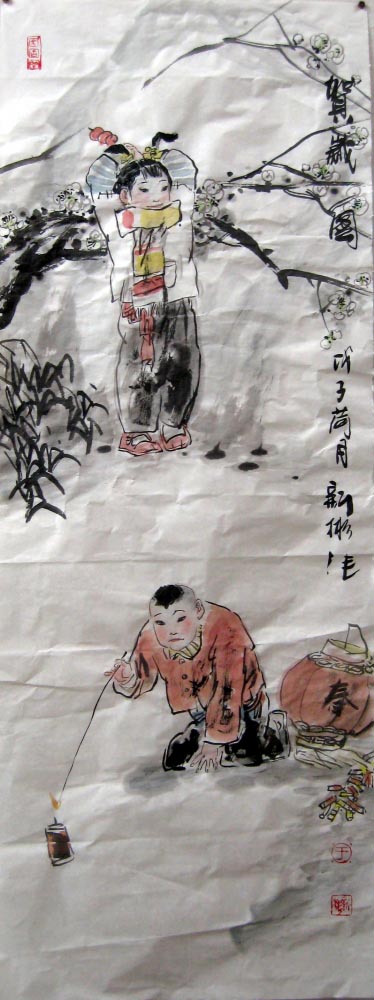 賀歲圖 戊子荷月 新彬
春
王